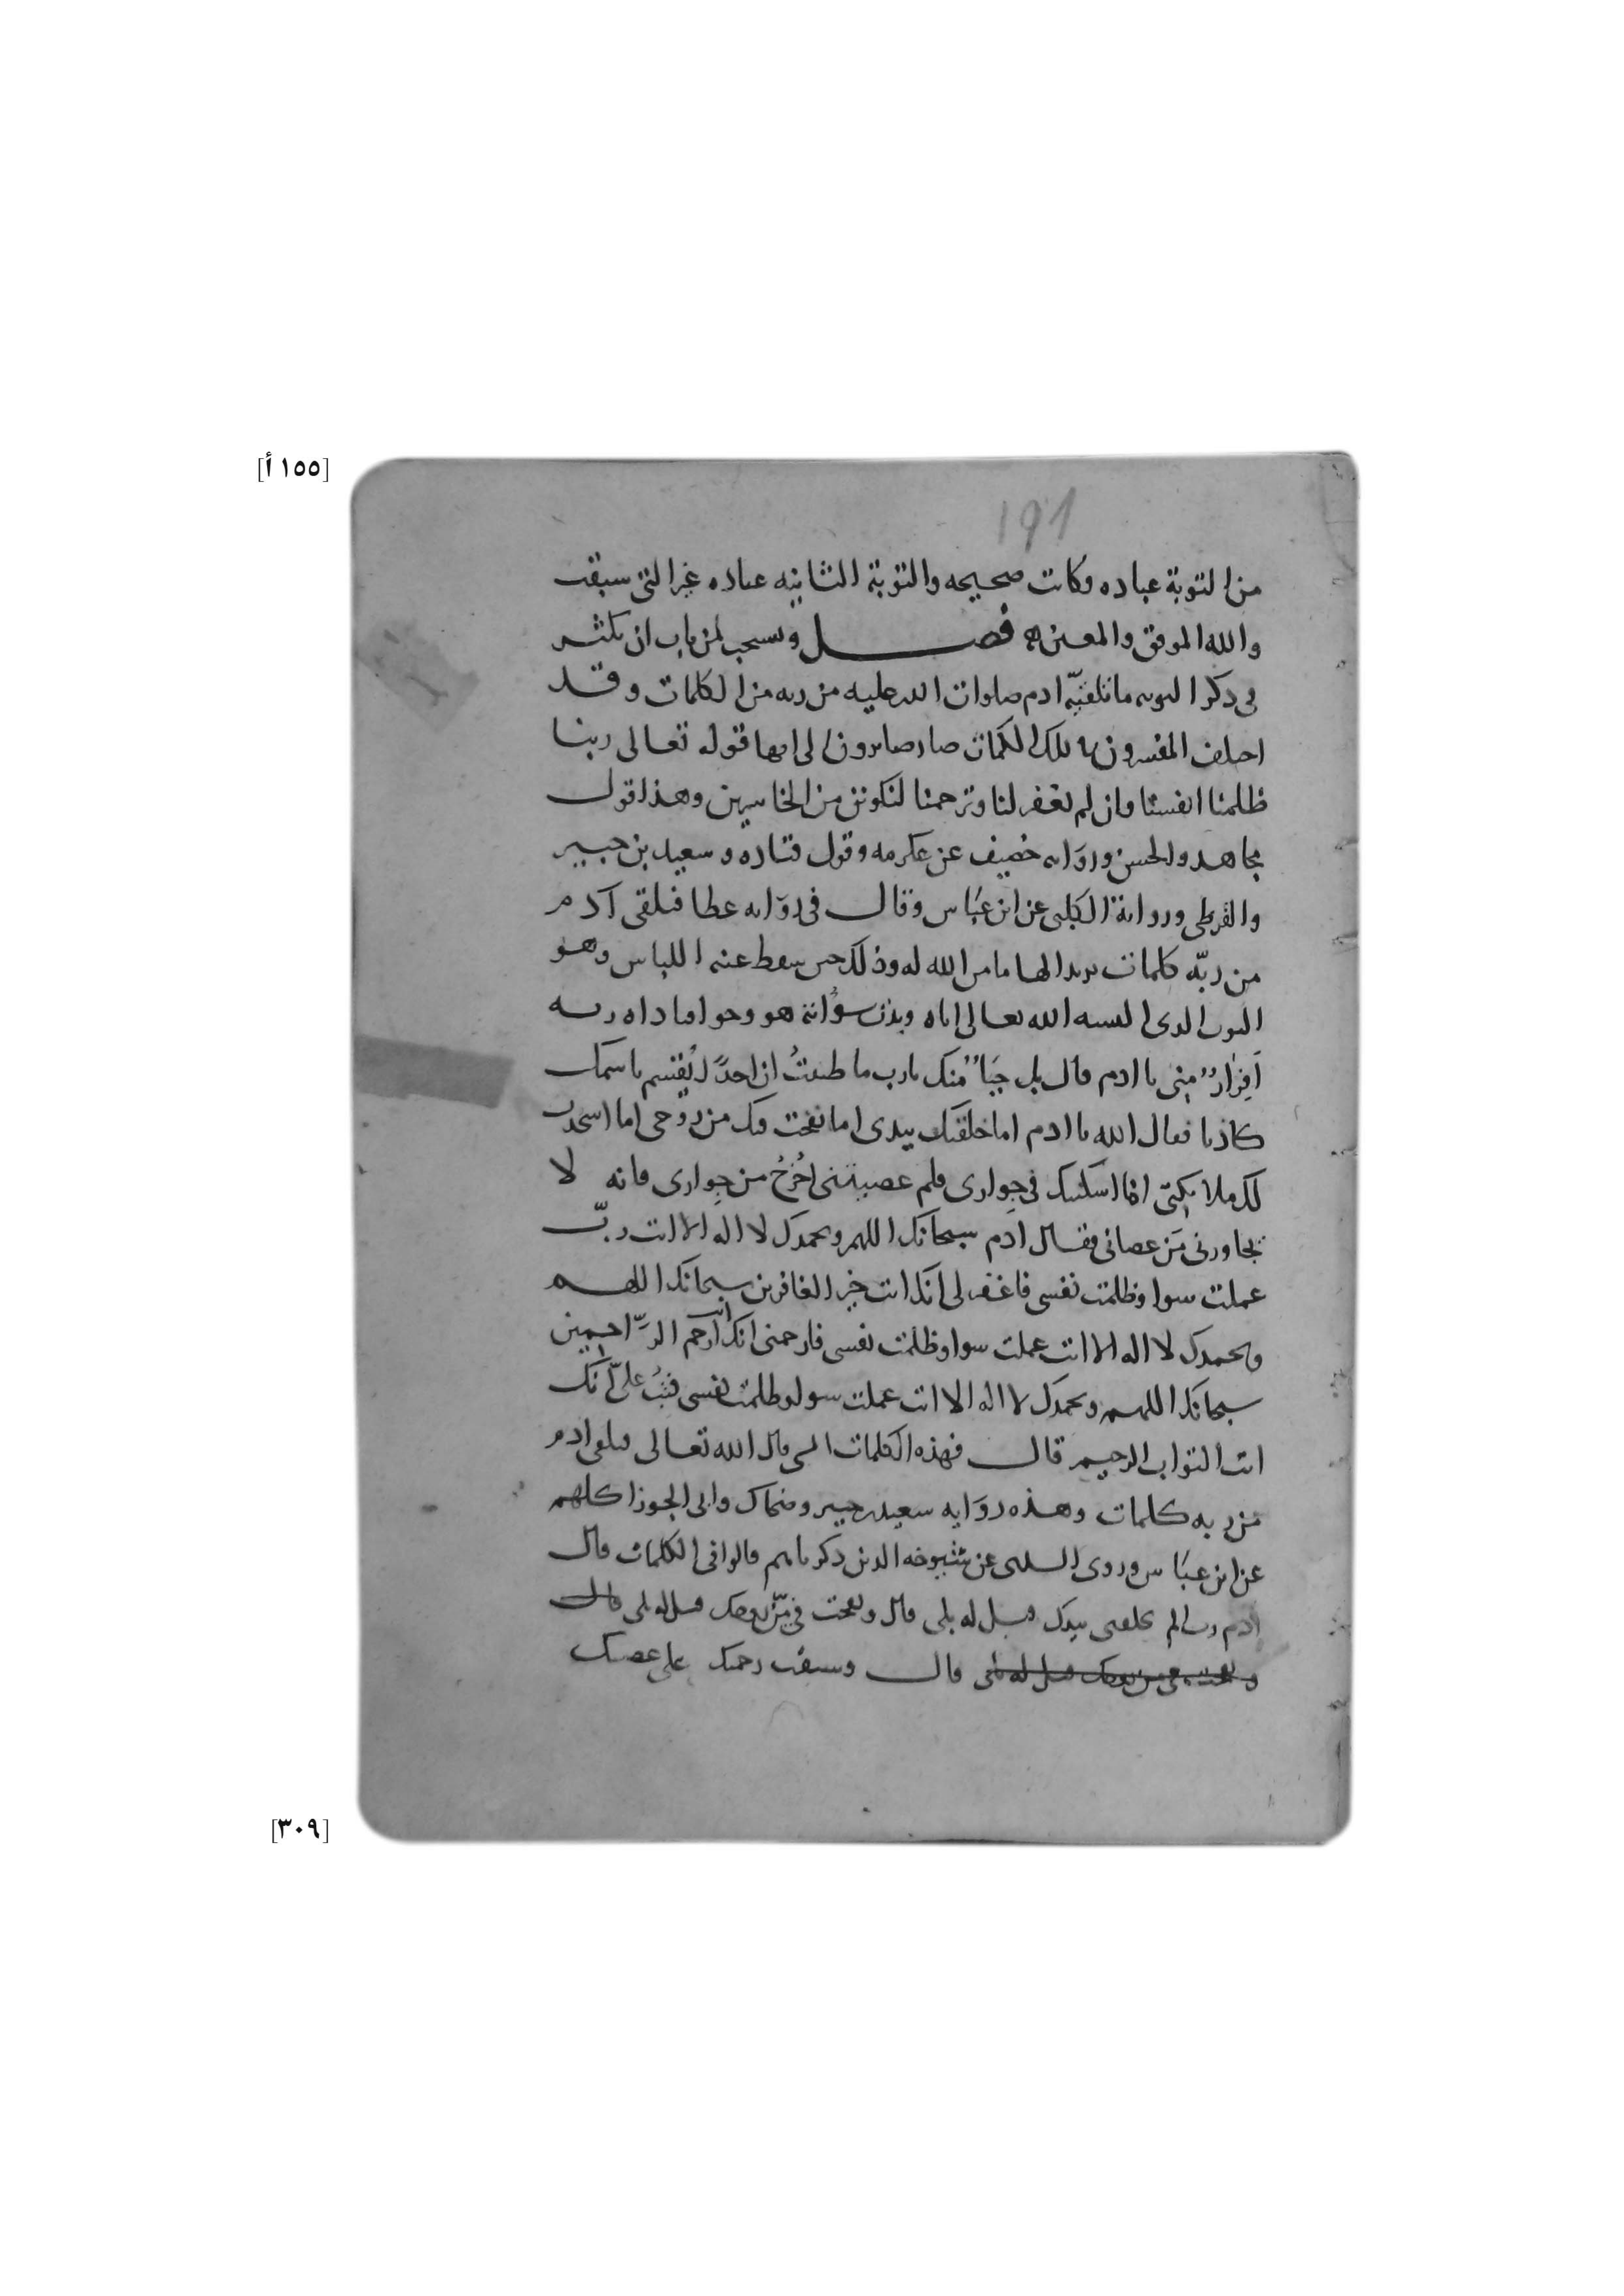 [١٥٥ أ]
191
من التوبة عباده وكانت صحيحه والتوبة الثانيه عباده غير التي سبقت
والله الموفق والمعين فصل ويستحب لمن تاب ان يكثر
في ذكر التوبه ما تلقيّه ادم صلوات الله عليه من ربه من الكلمات وقد
اختلف المفسرون في تلك الكلمات صار صايرون الى انها قوله تعالى ربنا
ظلمنا انفسنا وان لم تغفر لنا وترحمنا لنكونن من الخاسرين وهذا قول
مجاهد والحسن وروايه خصيف عن عكرمه وقول قتاده وسعيد بن جبير
والقرظي ورواية الكلبي عن ابن عباس وقال في روايه عطا فتلقى آدم
من ربّه كلمات يريد الهاما من الله له وذلك حين سقط عنه اللباس وهو
الثوب الذي البسه الله تعالى اياه وبدت سوْاته هو وحوا فناداه ربه
اَفِرارٌ مني يا ادم قال بل حَيَاءٌ منك يارب ما ظننتُ ان احدًا يُقسم باسمك
كاذبا فقال الله يا ادم اما خلقتك بيدي اما نفخت فيك من روحي اما اسجدت
لك ملايكتي اما اسكنتك في جِواري فلم عصيتني اخْرُجْ من جِواري فانه لا
يجاورني مَن عصاني فقال ادم سبحانك اللهم وبحمدك لا اله الا انت ربّ
عملت سوا وظلمت نفسي فاغفر لي انك انت خير الغافرين سبحانك اللهم
وبحمدك لا اله الا انت عملت سوا وظلمت نفسي فارحمني انك انت ارحم الرّاحمين
سبحانك اللهم وبحمدك لا اله الا انت عملت سوا وظلمت نفسي فتبْ عليّ انك
انت التواب الرحيم قال فهذه الكلمات التي قال الله تعالى فتلقى ادم
من ربه كلمات وهذه روايه سعيد بن جبير وضحاك وابي الجوزا كلهم
عن ابن عباس وروى السدي عن شيوخه الذين ذكرناهم قالوا في الكلمات قال
ادم رب الم تخلقني بيدك قيل له بلى قال ونفخت فيّ من روحك قيل له بلى قال
ونفخت في من روحك قيل له بلى قال وسبقت رحمتك على غضبك
[٣٠٩]